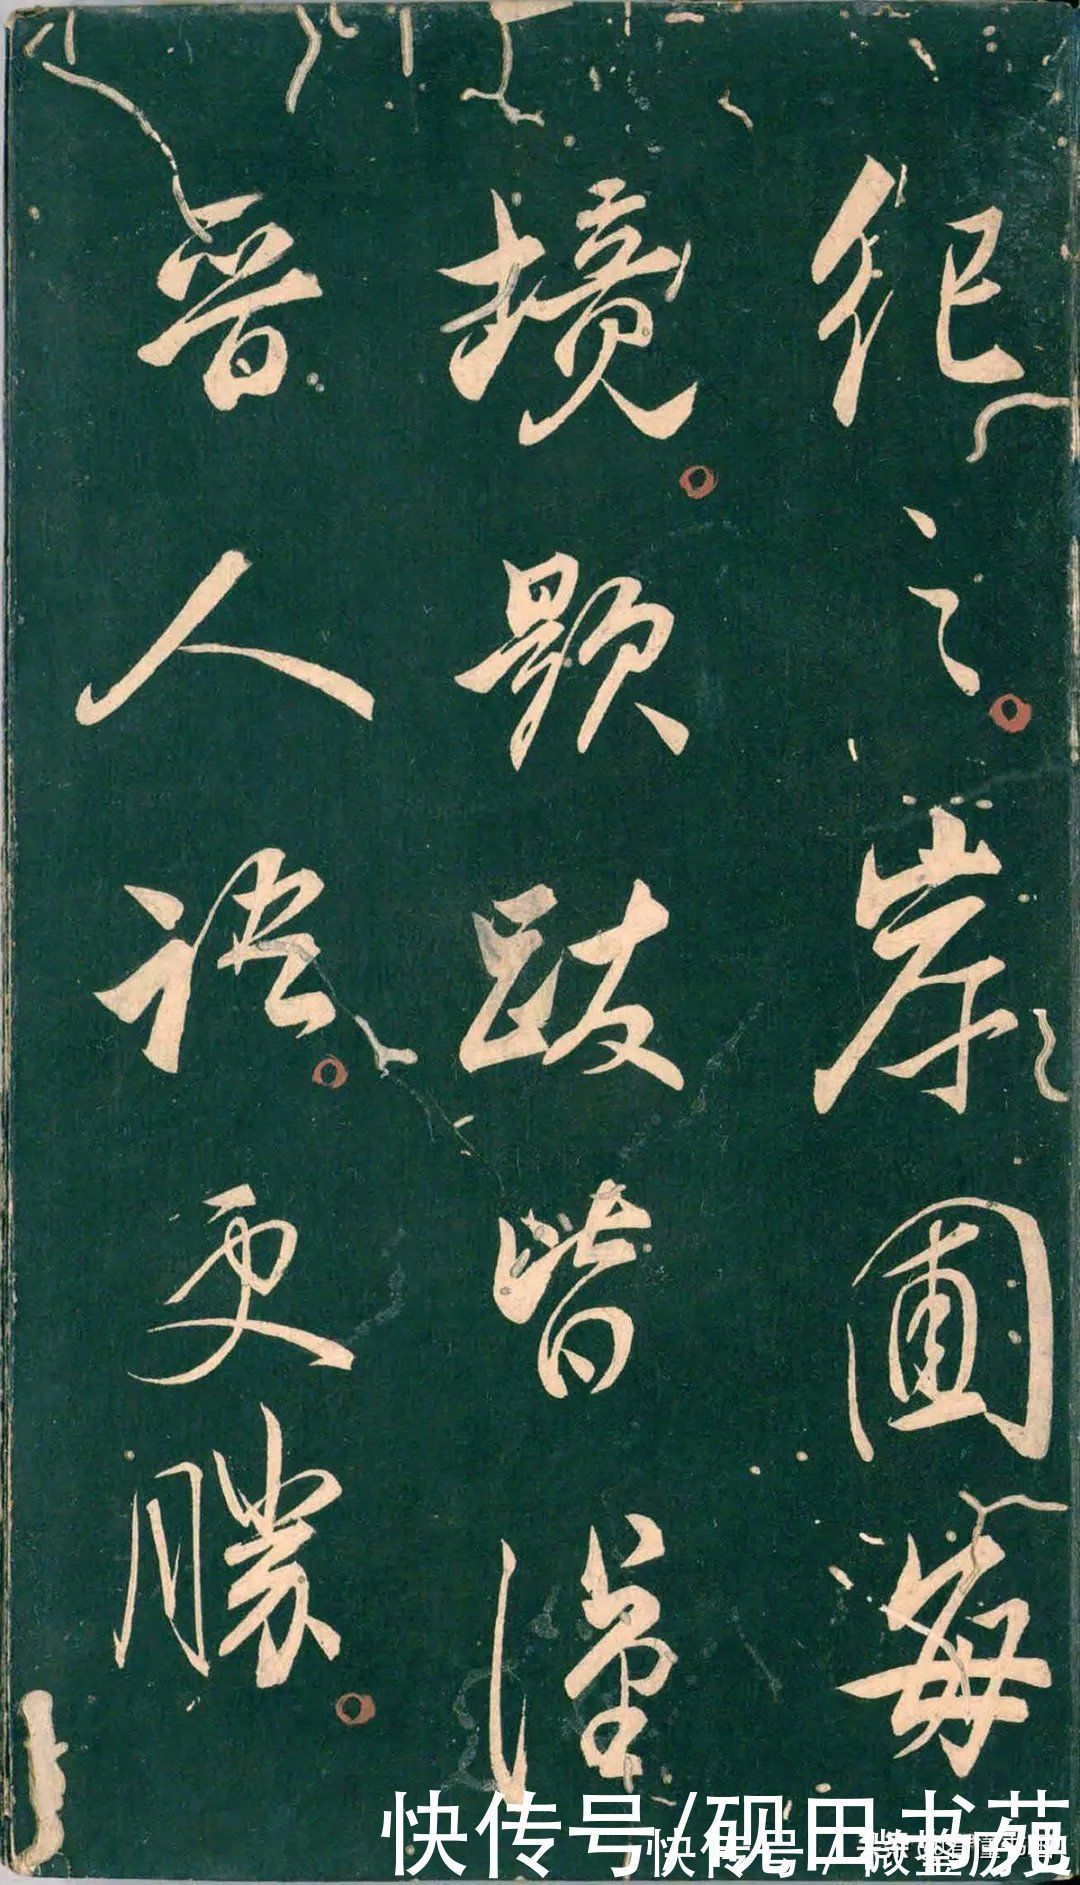 紀之岸圃每
境題跋皆漢
晋人語更勝
快传号/砚田书苑
快传号